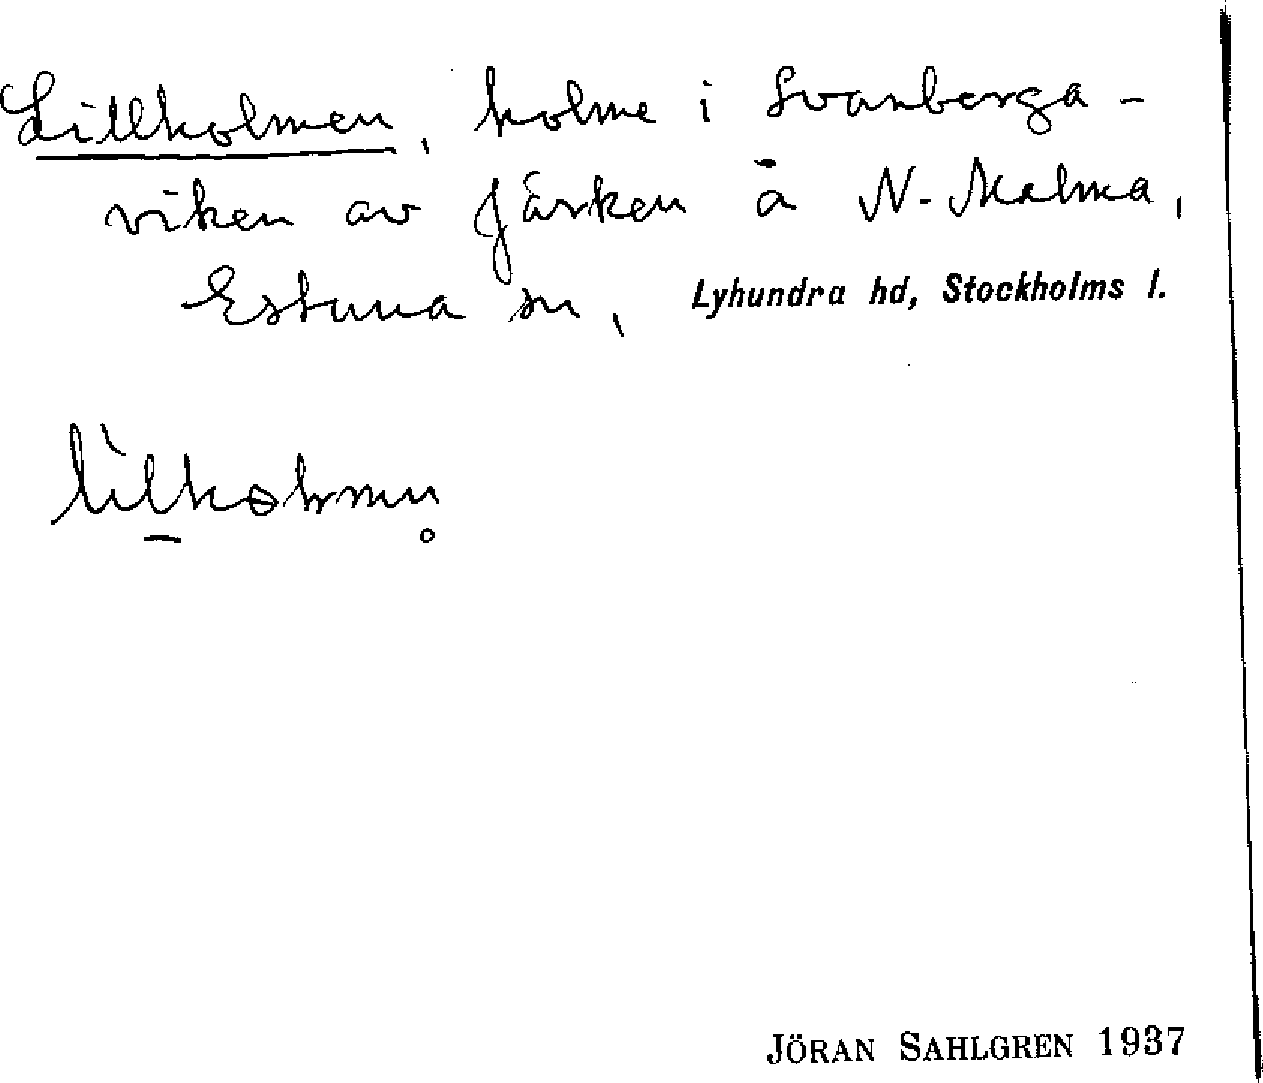 Lillholmen, holme i Svanberga-
viken av Järken å N. Malma,
Estuna sn, Lyhundra hd, Stockholms l.
JÖRAN SAHLGREN 1937